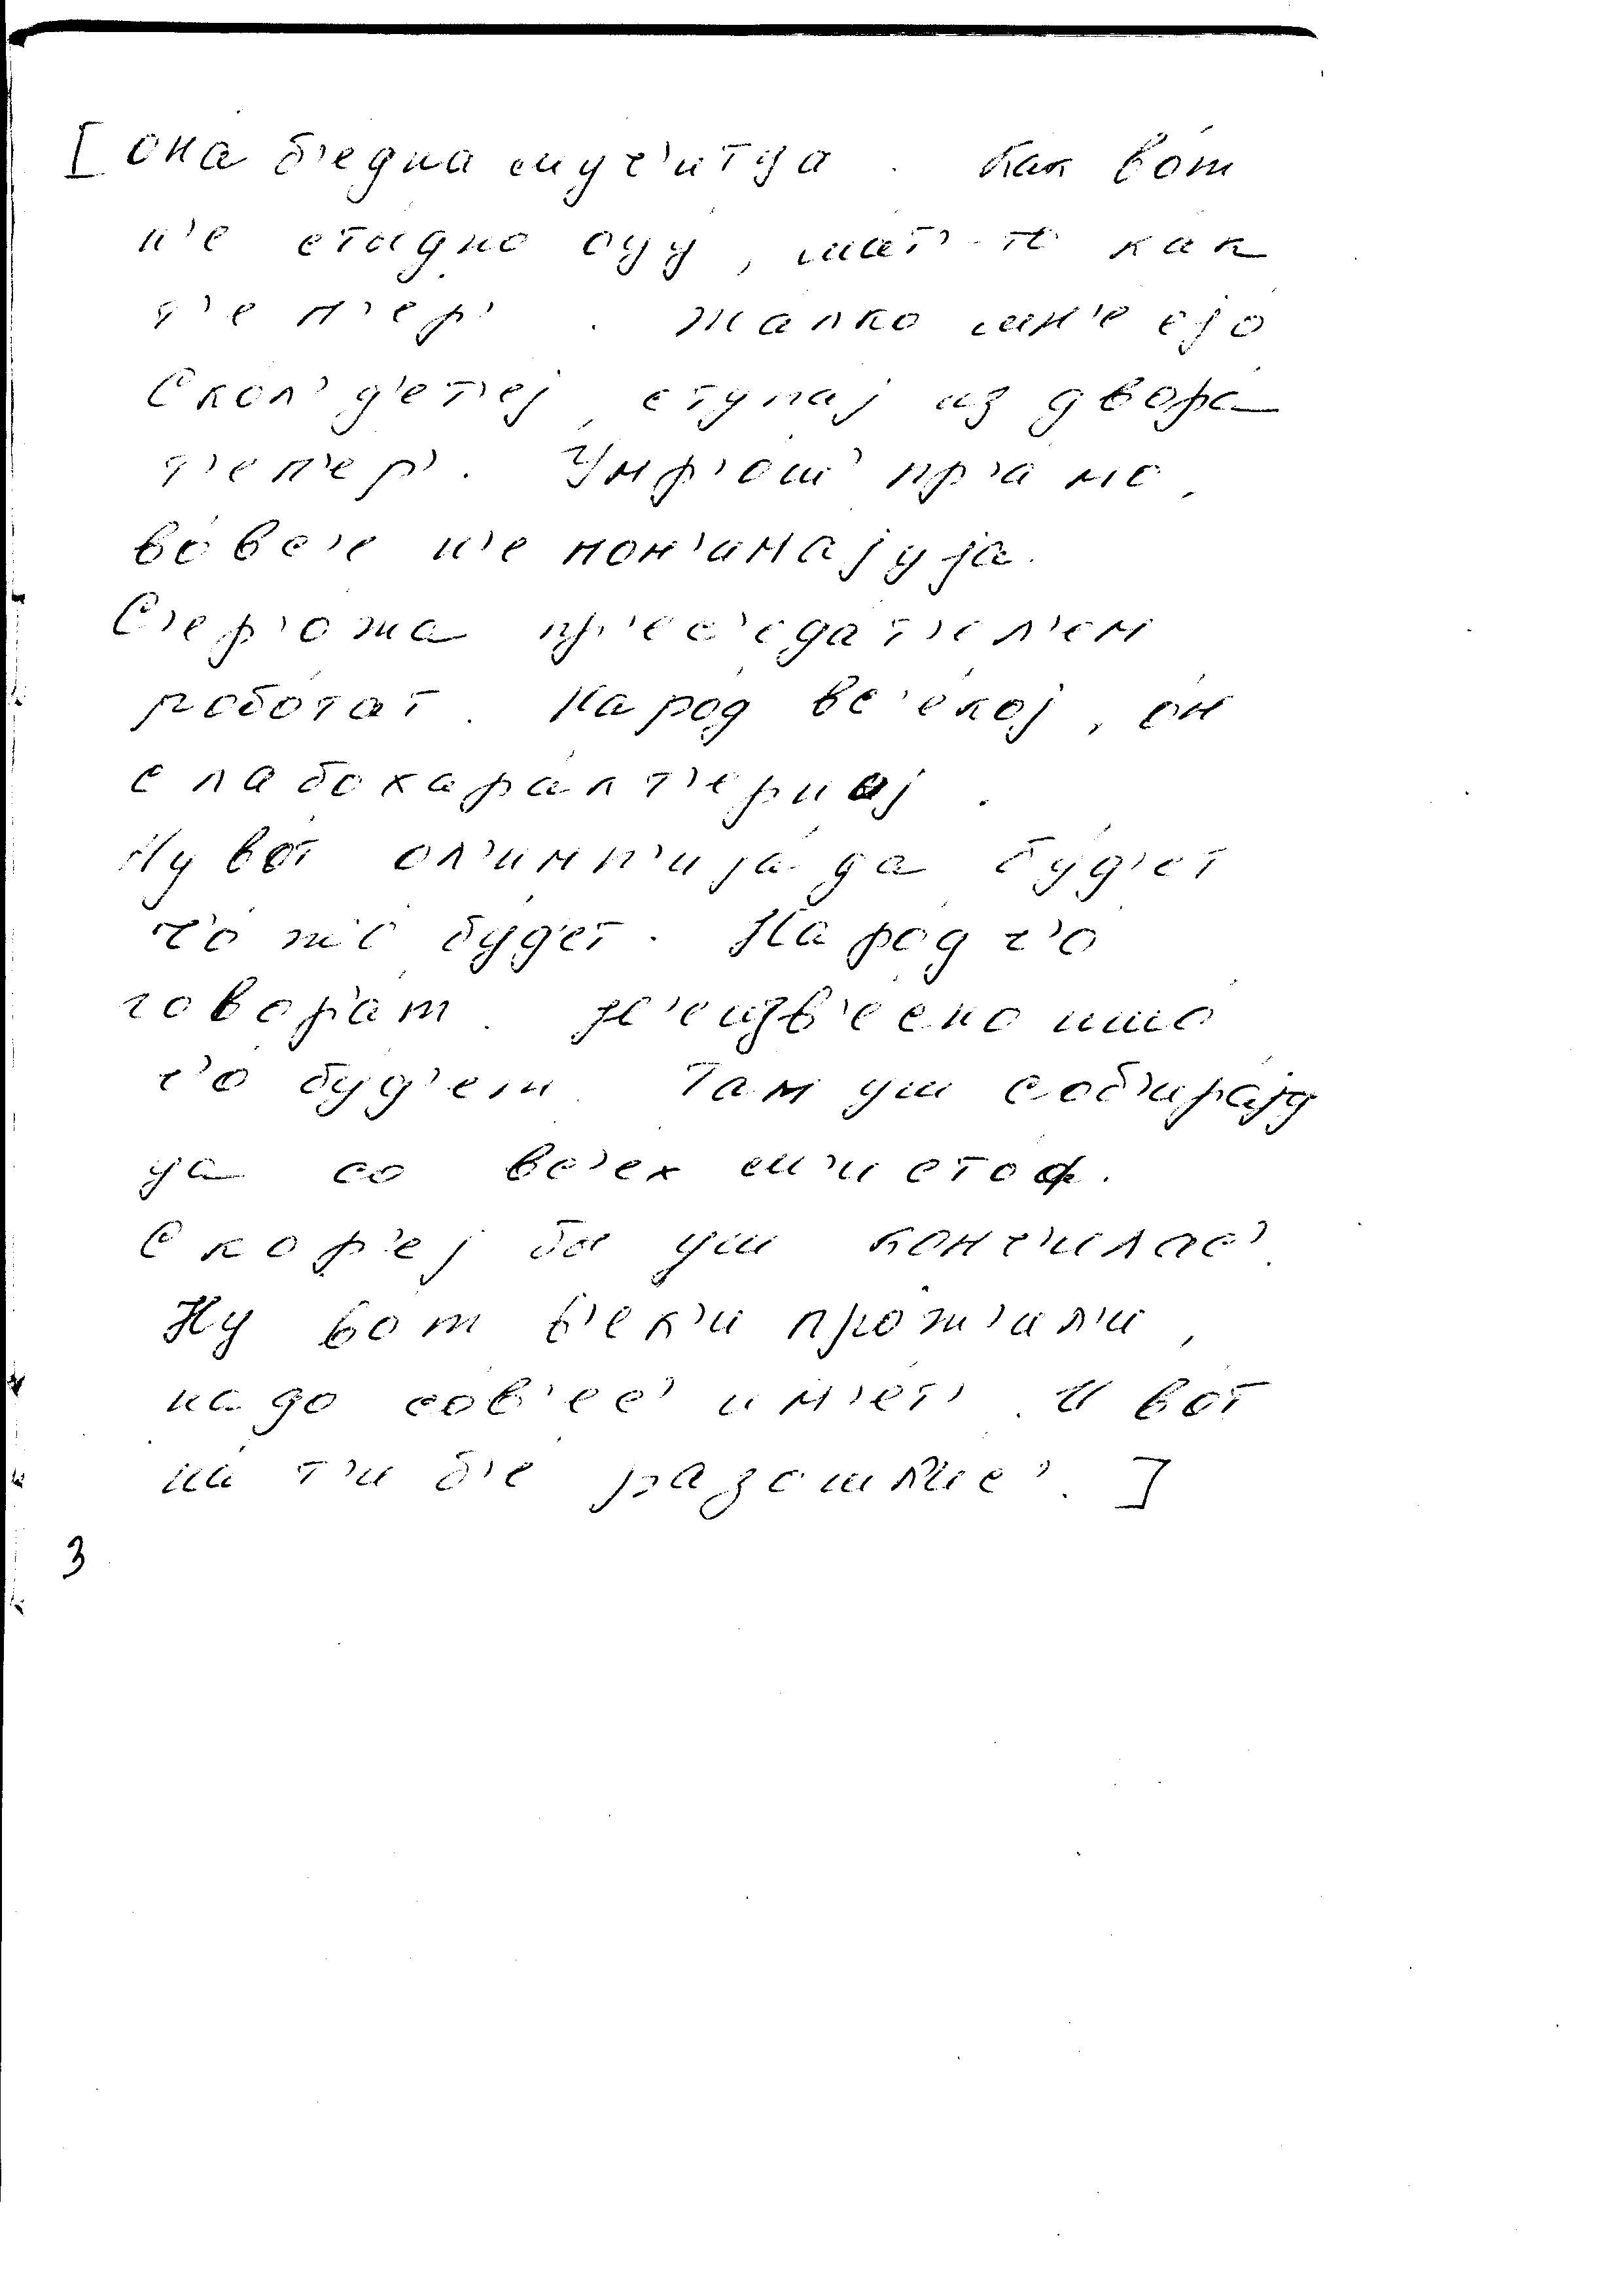 [она́ б'е́дна му́ч'итца. Как во́т
н'е сты́дно оцу́, мат'-то как
т'еп'е́р'. Жа́лко мн'е јејо́
Скол' д'ет'е́ј, ступа́ј из двора́
т'еп'е́р'. Умр'о́ш пр'а́мо,
во́вс'е н'е пон'има́ју ја.
С'ер'о́жа пр'ес'еда́т'ел'ем
робо́тат. Наро́д вс'а́кој, о́н
слабохара́кт'ерној.
Ну вот ол'имп'ија́да бу́д'ет
ч'о́ жо бу́д'ет. Наро́д ч'о
говор'а́т. Н'еизв'е́сно ишшо
ч'о́ бу́д'ет. Там уш соб'ира́јуц
ца со вс'ех м'истоф.
Скор'е́ј бы уш ко́нч'илас'.
Ну вот в'ек'и́ про́жил'и,
на́до со́в'ес' им'е́т'. И вот
на т'иб'е́ разошли́с'.]
3